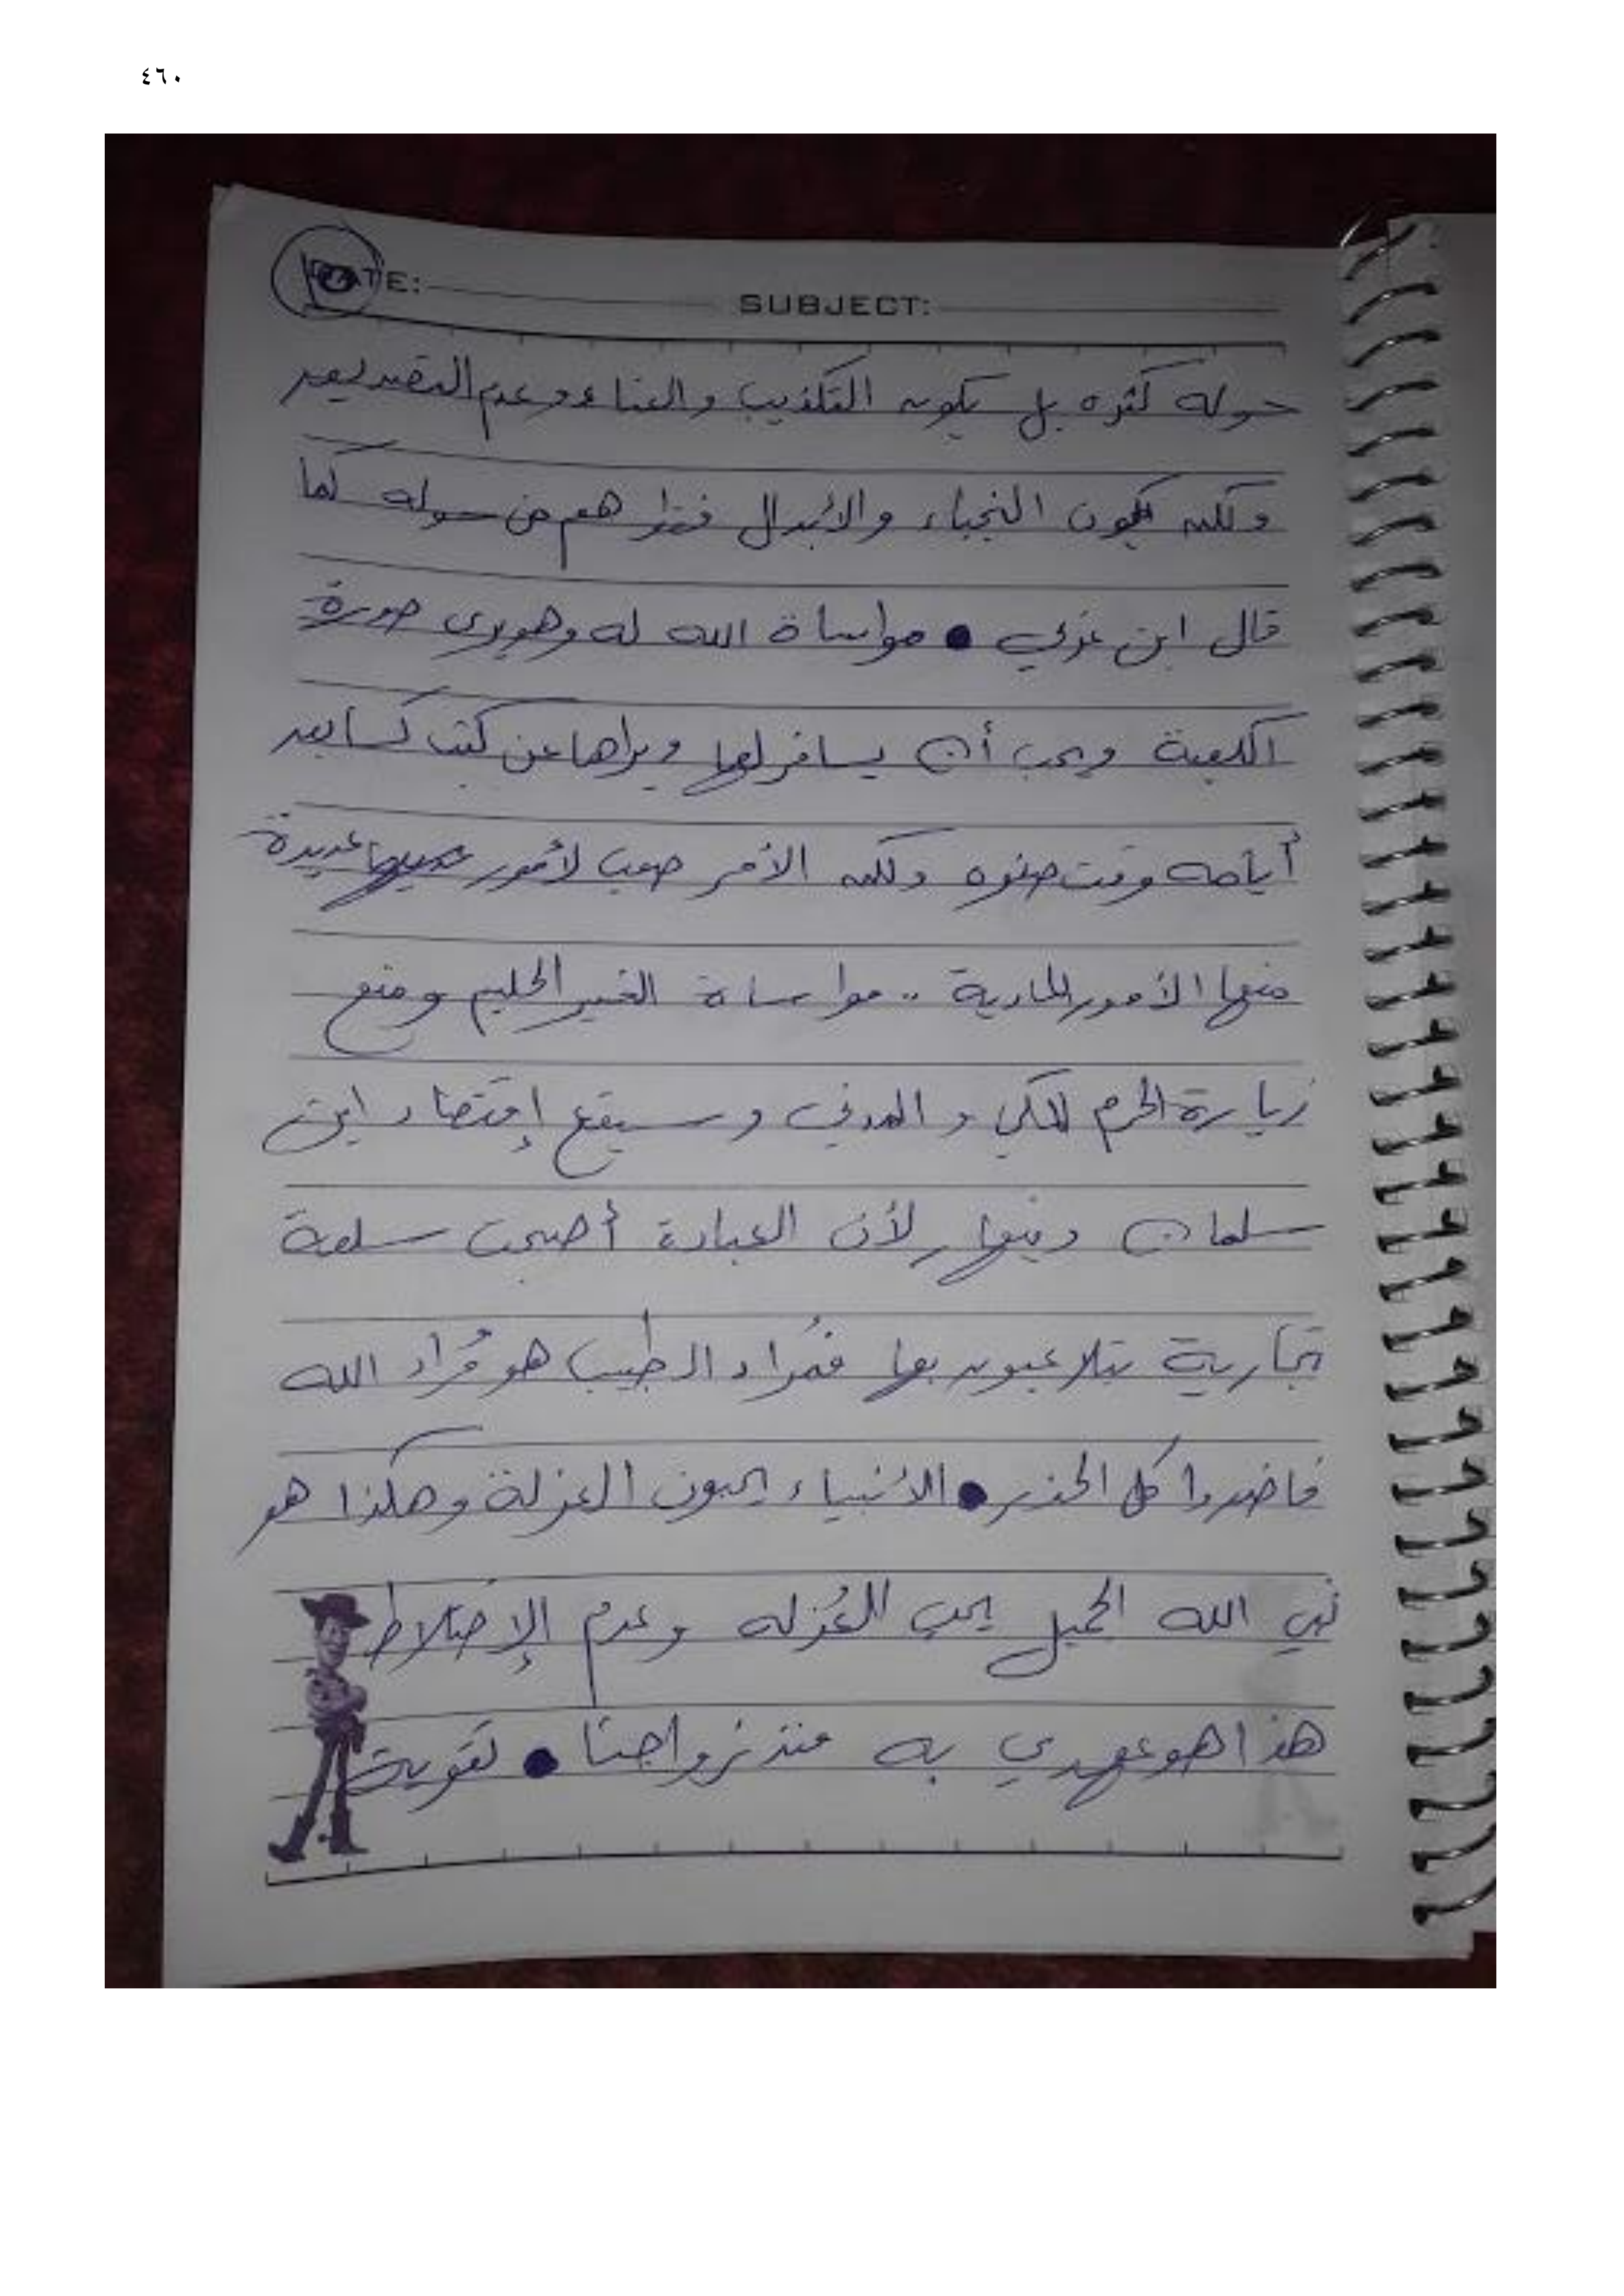 ٤٦٠
DATE:
SUBJECT:
حوله كثره بل يكون التكذيب والعناد وعدم التصديق
ولكن يكون النجباء والأبدال فقط هم من حوله كما
قال ابن عربي • مواساة الله له وهو يرى صورة
الكعبة ويحب أن يسافر لها ويراها عن كثب كسابعد
أيامه وقت صفوه ولكن الأمر صعب لأمور عديدة
منها الأمور المادية .. مواساة الغير الحليم ومنع
زيارة الحرم المكي والمدني وسيقع إقتصاد ابن
سلمان وينهار لأن العبادة أصبحت سلعة
تجارية يتلاعبون بها فمُراد الطبيب هو مُراد الله
فاحذروا كل الحذر • الأنبياء يحبون العزلة وهكذا هو
نبي الله الجميل يحب العُزله وعدم الإختلاط
هذا هو عهدي به منذ زواجنا • تقوية